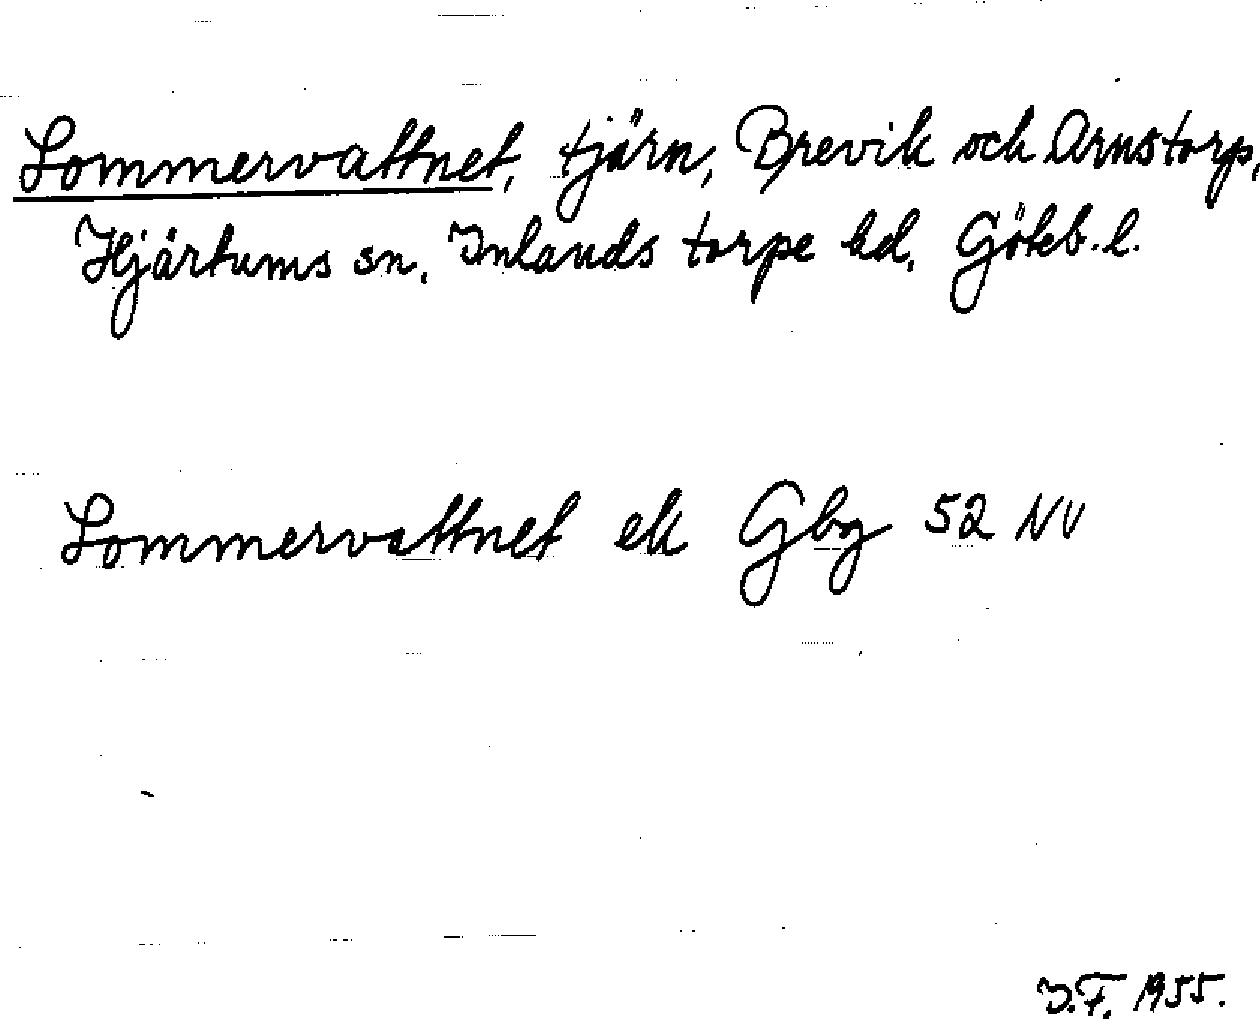 Lommervattnet, tjärn, Brevik och Arnstorp,
Hjärtums sn, Inlands torpe hd, Göteb. l.
Lommervattnet ek Gbg 52 NV
I.F. 1955.